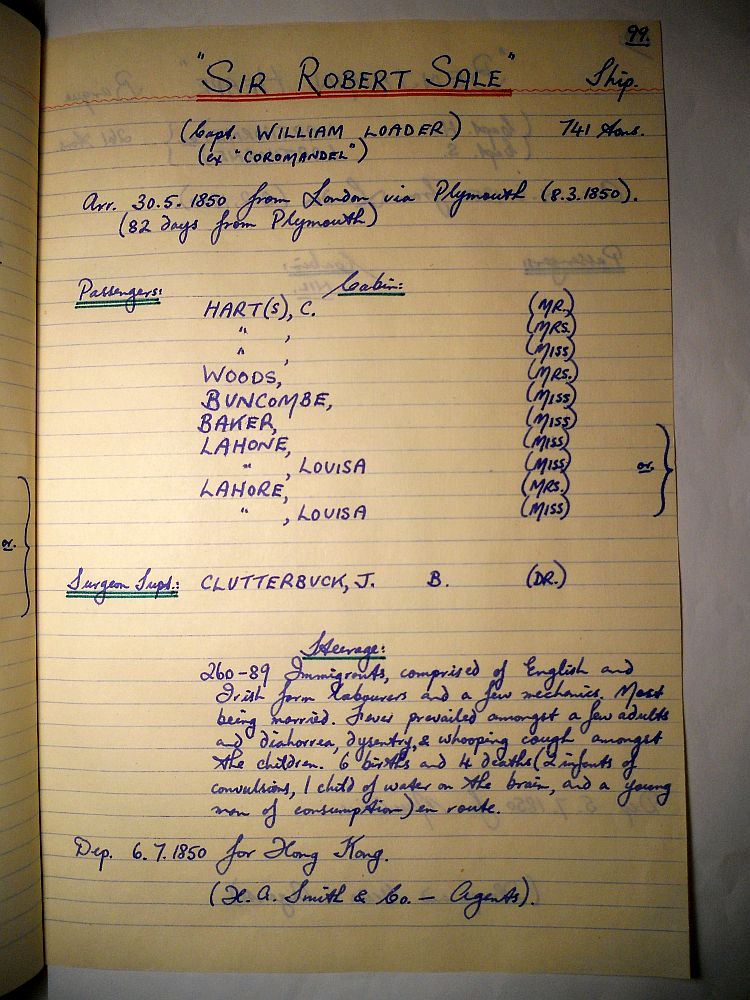 99.
"SIR ROBERT SALE" Ship.
(Capt. WILLIAM LOADER) 741 tons.
(ex "COROMANDEL")
Arr. 30.5.1850 from London via Plymouth (8.3.1850).
(82 days from Plymouth)
Passengers: Cabin:
HART(S), C. (MR.)
" , (MRS.)
" , (MISS)
WOODS, (MRS.)
BUNCOMBE, (MISS)
BAKER, (MISS)
LAHONE, (MISS)
" , LOUISA (MISS) or.
LAHORE, (MRS.)
" , LOUISA (MISS)
or.
Surgeon Supt.: CLUTTERBUCK, J. B. (DR.)
Steerage:
260-89 Immigrants, comprised of English and
Irish farm labourers and a few mechanics. Most
being married. Fever prevailed amongst a few adults
and diahorrea, dysentry, & whooping cough amongst
the children. 6 births and 4 deaths (2 infants of
convulsions, 1 child of water on the brain, and a young
man of consumption) en route.
Dep. 6.7.1850 for Hong Kong.
(H. A. Smith & Co. — Agents).